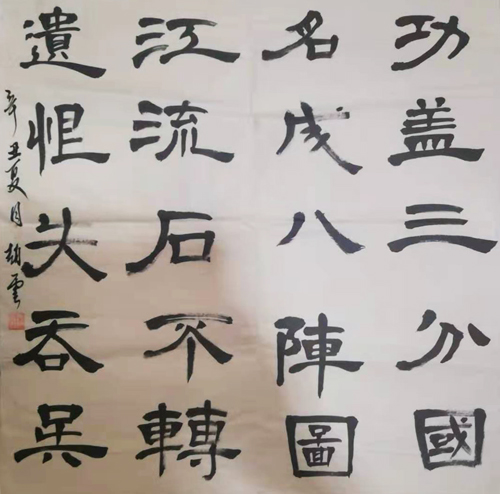 功盖三分國
名成八陣圖
江流石不轉
遺恨失吞吴
辛丑夏月